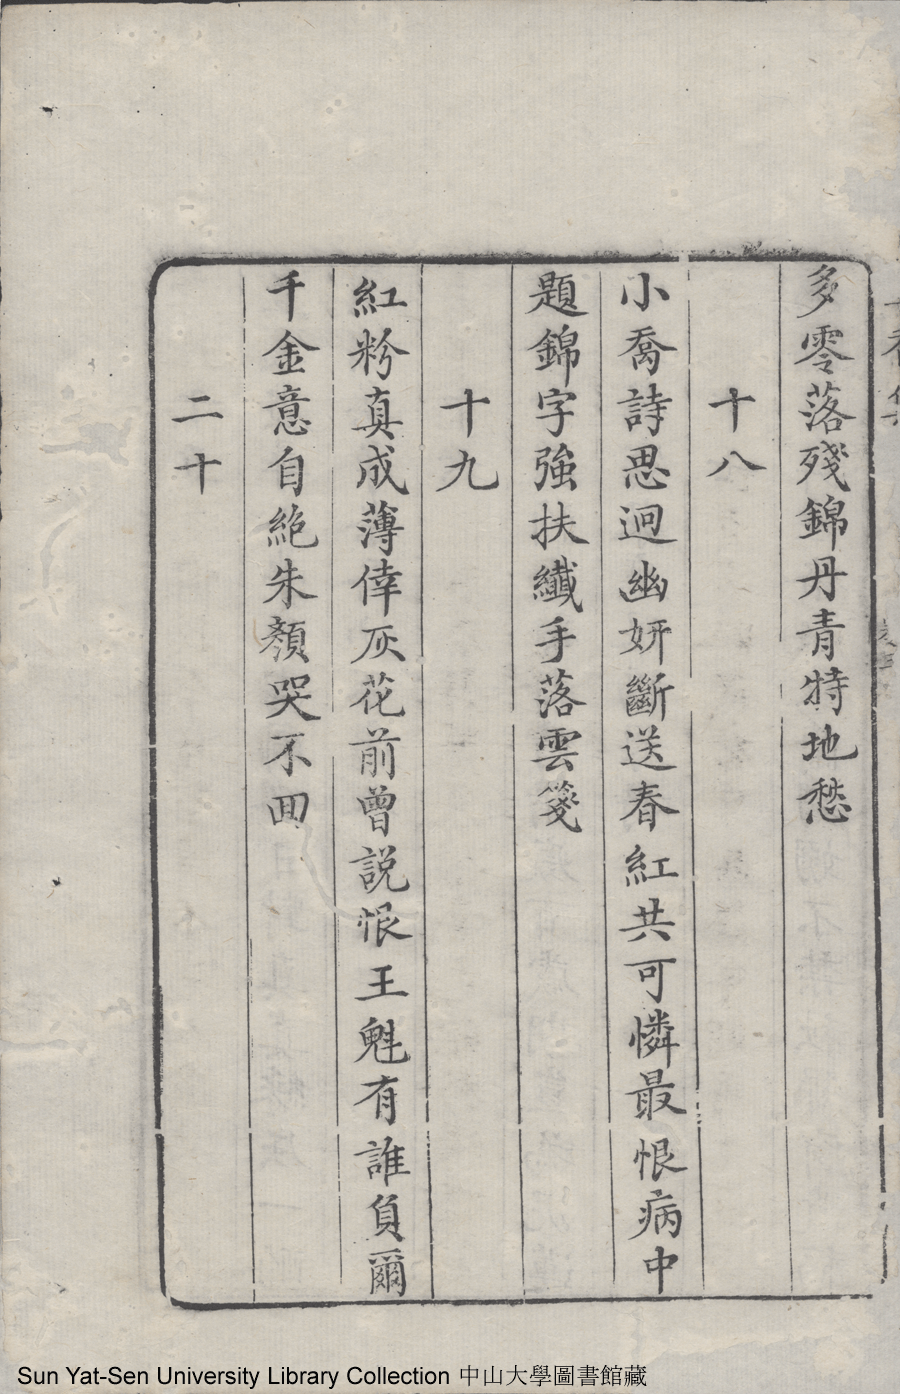 多零落殘錦丹青特地愁
十八
小喬詩思迥幽妍斷送春紅共可憐最恨病中
題錦字強扶纖手落雲箋
十九
紅粉真成薄倖灰花前曾説恨王魁有誰負爾
千金意自絶朱顏哭不囬
二十
Sun Yat-Sen University Library Collection 中山大學圖書館藏